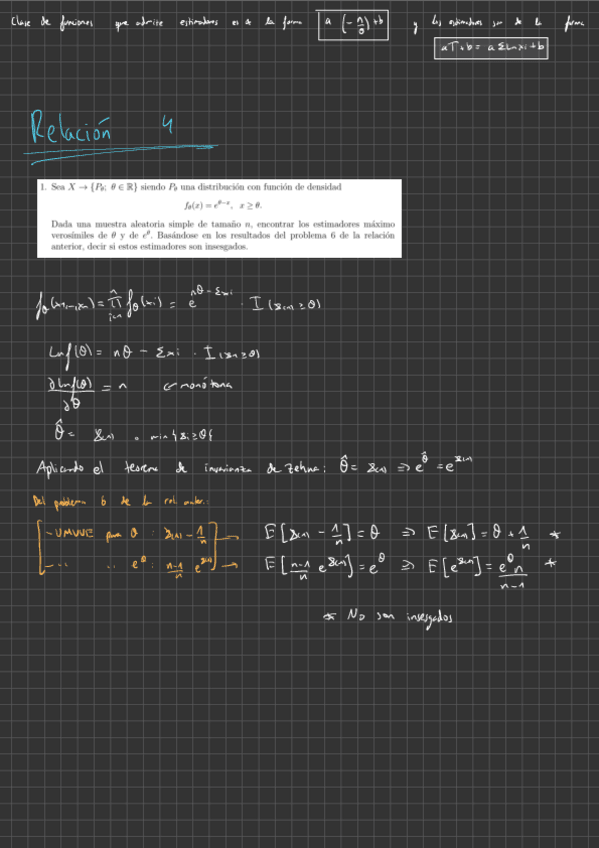 Clase de funciones que admite estimadores es de la forma a (-n/θ)+b y los estimadores son de la forma
aT+b = a Σ Ln xi + b
Relación 4
1. Sea X → {Pθ; θ ∈ ℝ} siendo Pθ una distribución con función de densidad
fθ(x) = e^{θ−x}, x ≥ θ.
Dada una muestra aleatoria simple de tamaño n, encontrar los estimadores máximo
verosímiles de θ y de e^θ. Basándose en los resultados del problema 6 de la relación
anterior, decir si estos estimadores son insesgados.
fθ(x1,...,xn) = ∏_{i=1}^{n} fθ(xi) = e^{nθ − Σxi} · I(x(1) ≥ θ)
Ln f(θ) = nθ − Σxi · I(x(1) ≥ θ)
∂Lnf(θ)/∂θ = n ← monótona
θ̂ = X(1) o min{xi ≥ θ}
Aplicando el teorema de invarianza de Zehna: θ̂ = X(1) ⇒ e^θ̂ = e^{X(1)}
Del problema 6 de la rel. anter.:
- UMVUE para θ : X(1) − 1/n → E[X(1) − 1/n] = θ ⇒ E[X(1)] = θ + 1/n *
- ... .. e^θ : n-1/n e^{X(1)} → E[n-1/n e^{X(1)}] = e^θ ⇒ E[e^{X(1)}] = e^θ n/n-1 *
* No son insesgados